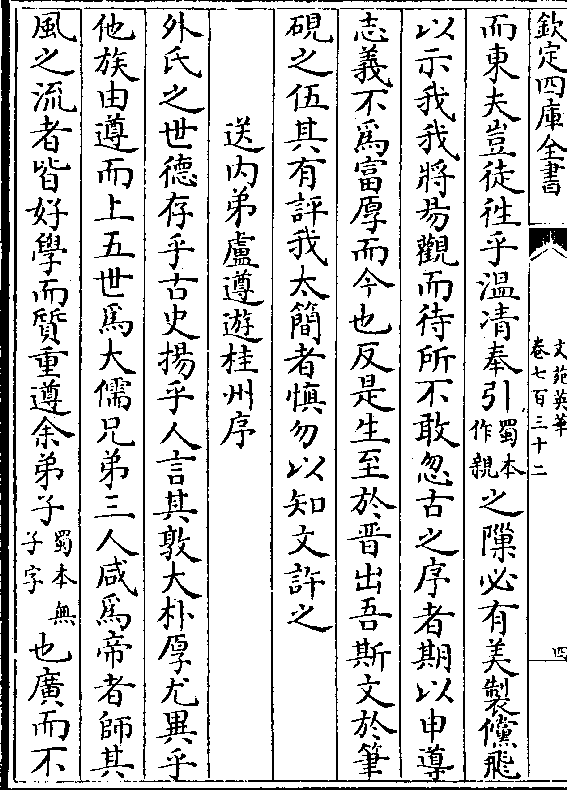 欽定四庫全書
文苑英華
卷七百三十二
四
而東夫豈徒徃乎溫凊奉引蜀本作親之隟必有美製儻飛
以示我我將易觀而待所不敢忽古之序者期以申導
志義不爲富厚而今也反是生至於晋出吾斯文於筆
硯之伍其有評我太簡者慎勿以知文許之
送内弟盧遵遊桂州序
外氏之世德存乎古史揚乎人言其敦大朴厚尤異乎
他族由遵而上五世爲大儒兄弟三人咸爲帝者師其
風之流者皆好學而質重遵余弟子蜀本無子字也廣而不